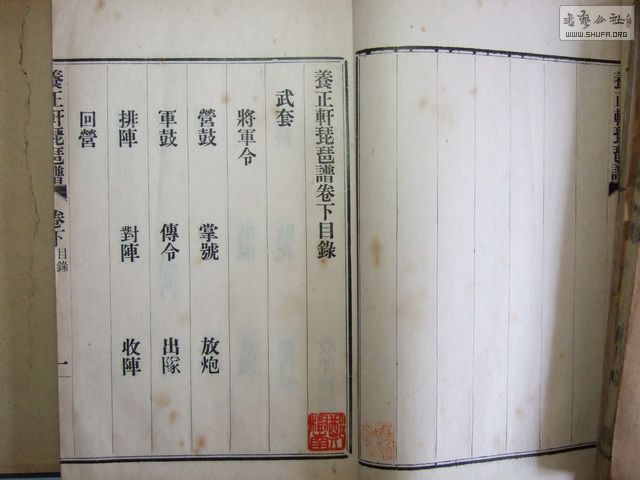 養正軒琵琶譜卷下目錄
武套
將軍令
營鼓 掌號 放炮
軍鼓 傳令 出隊
排陣 對陣 收陣
回營
養正軒琵琶譜 卷下 目錄 一
養正軒琵琶譜
书艺公社
WWW.SHUFA.ORG